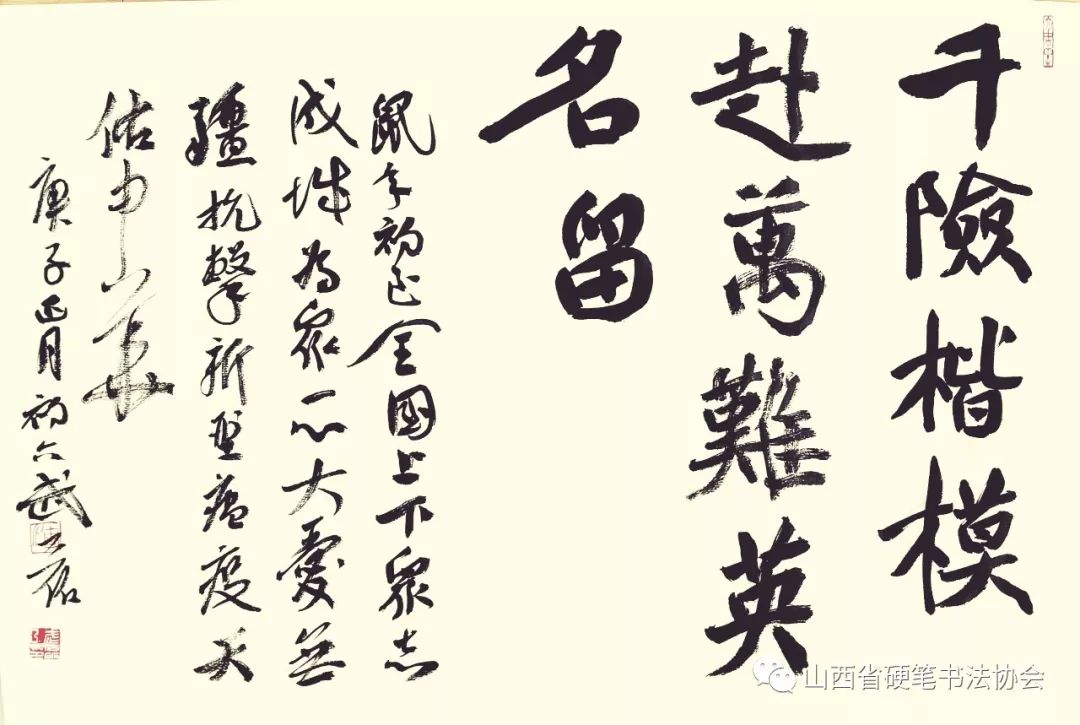 千險楷模
赴萬難英
名留
鼠年初全國上下衆志
成城萬衆一心大愛無
疆抗擊新型瘟疫天
佑中華
庚子正月初六武
山西省硬笔书法协会